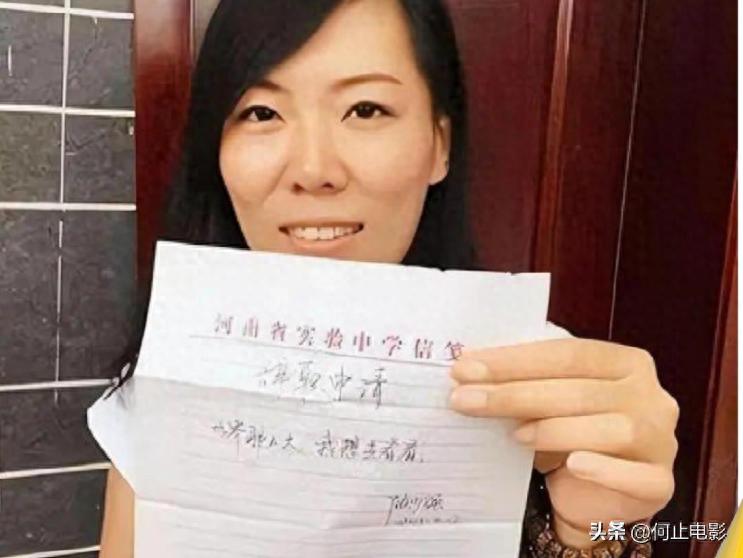 河南省实验中学信笺
辞职申请
世界那么大,我想去看看。
头条 @何止电影